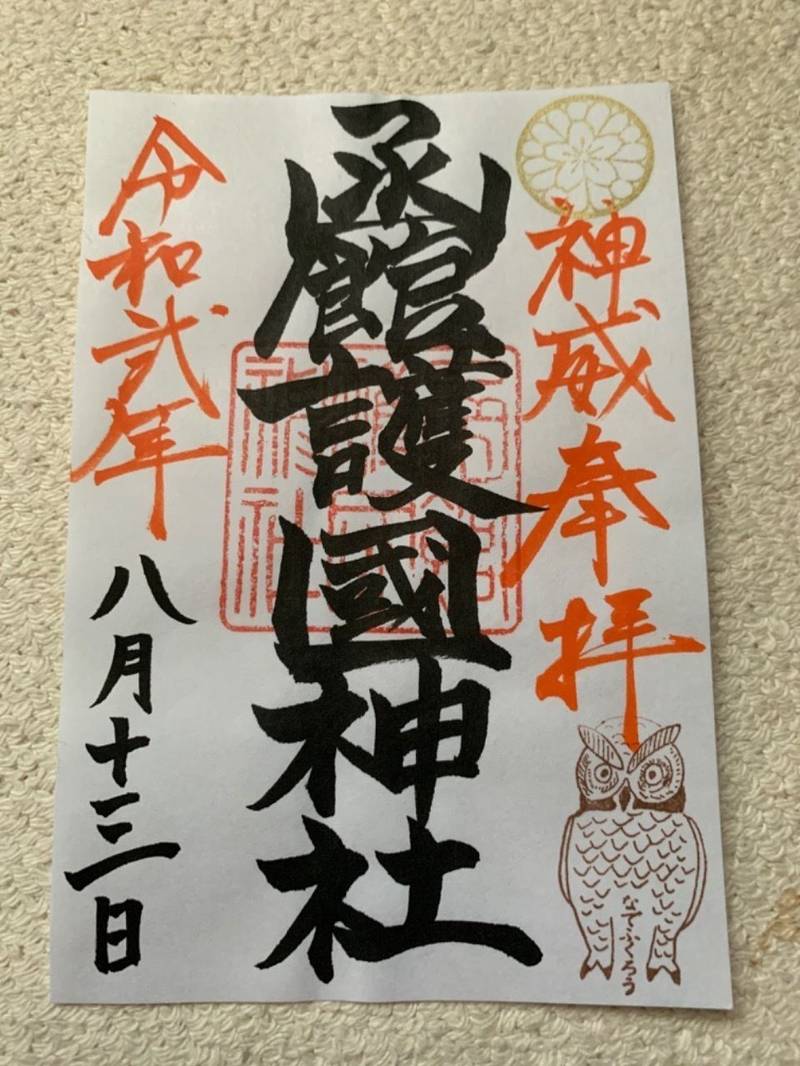 神威奉拝
なでふくろう
函館護國神社
令和弐年
八月十三日